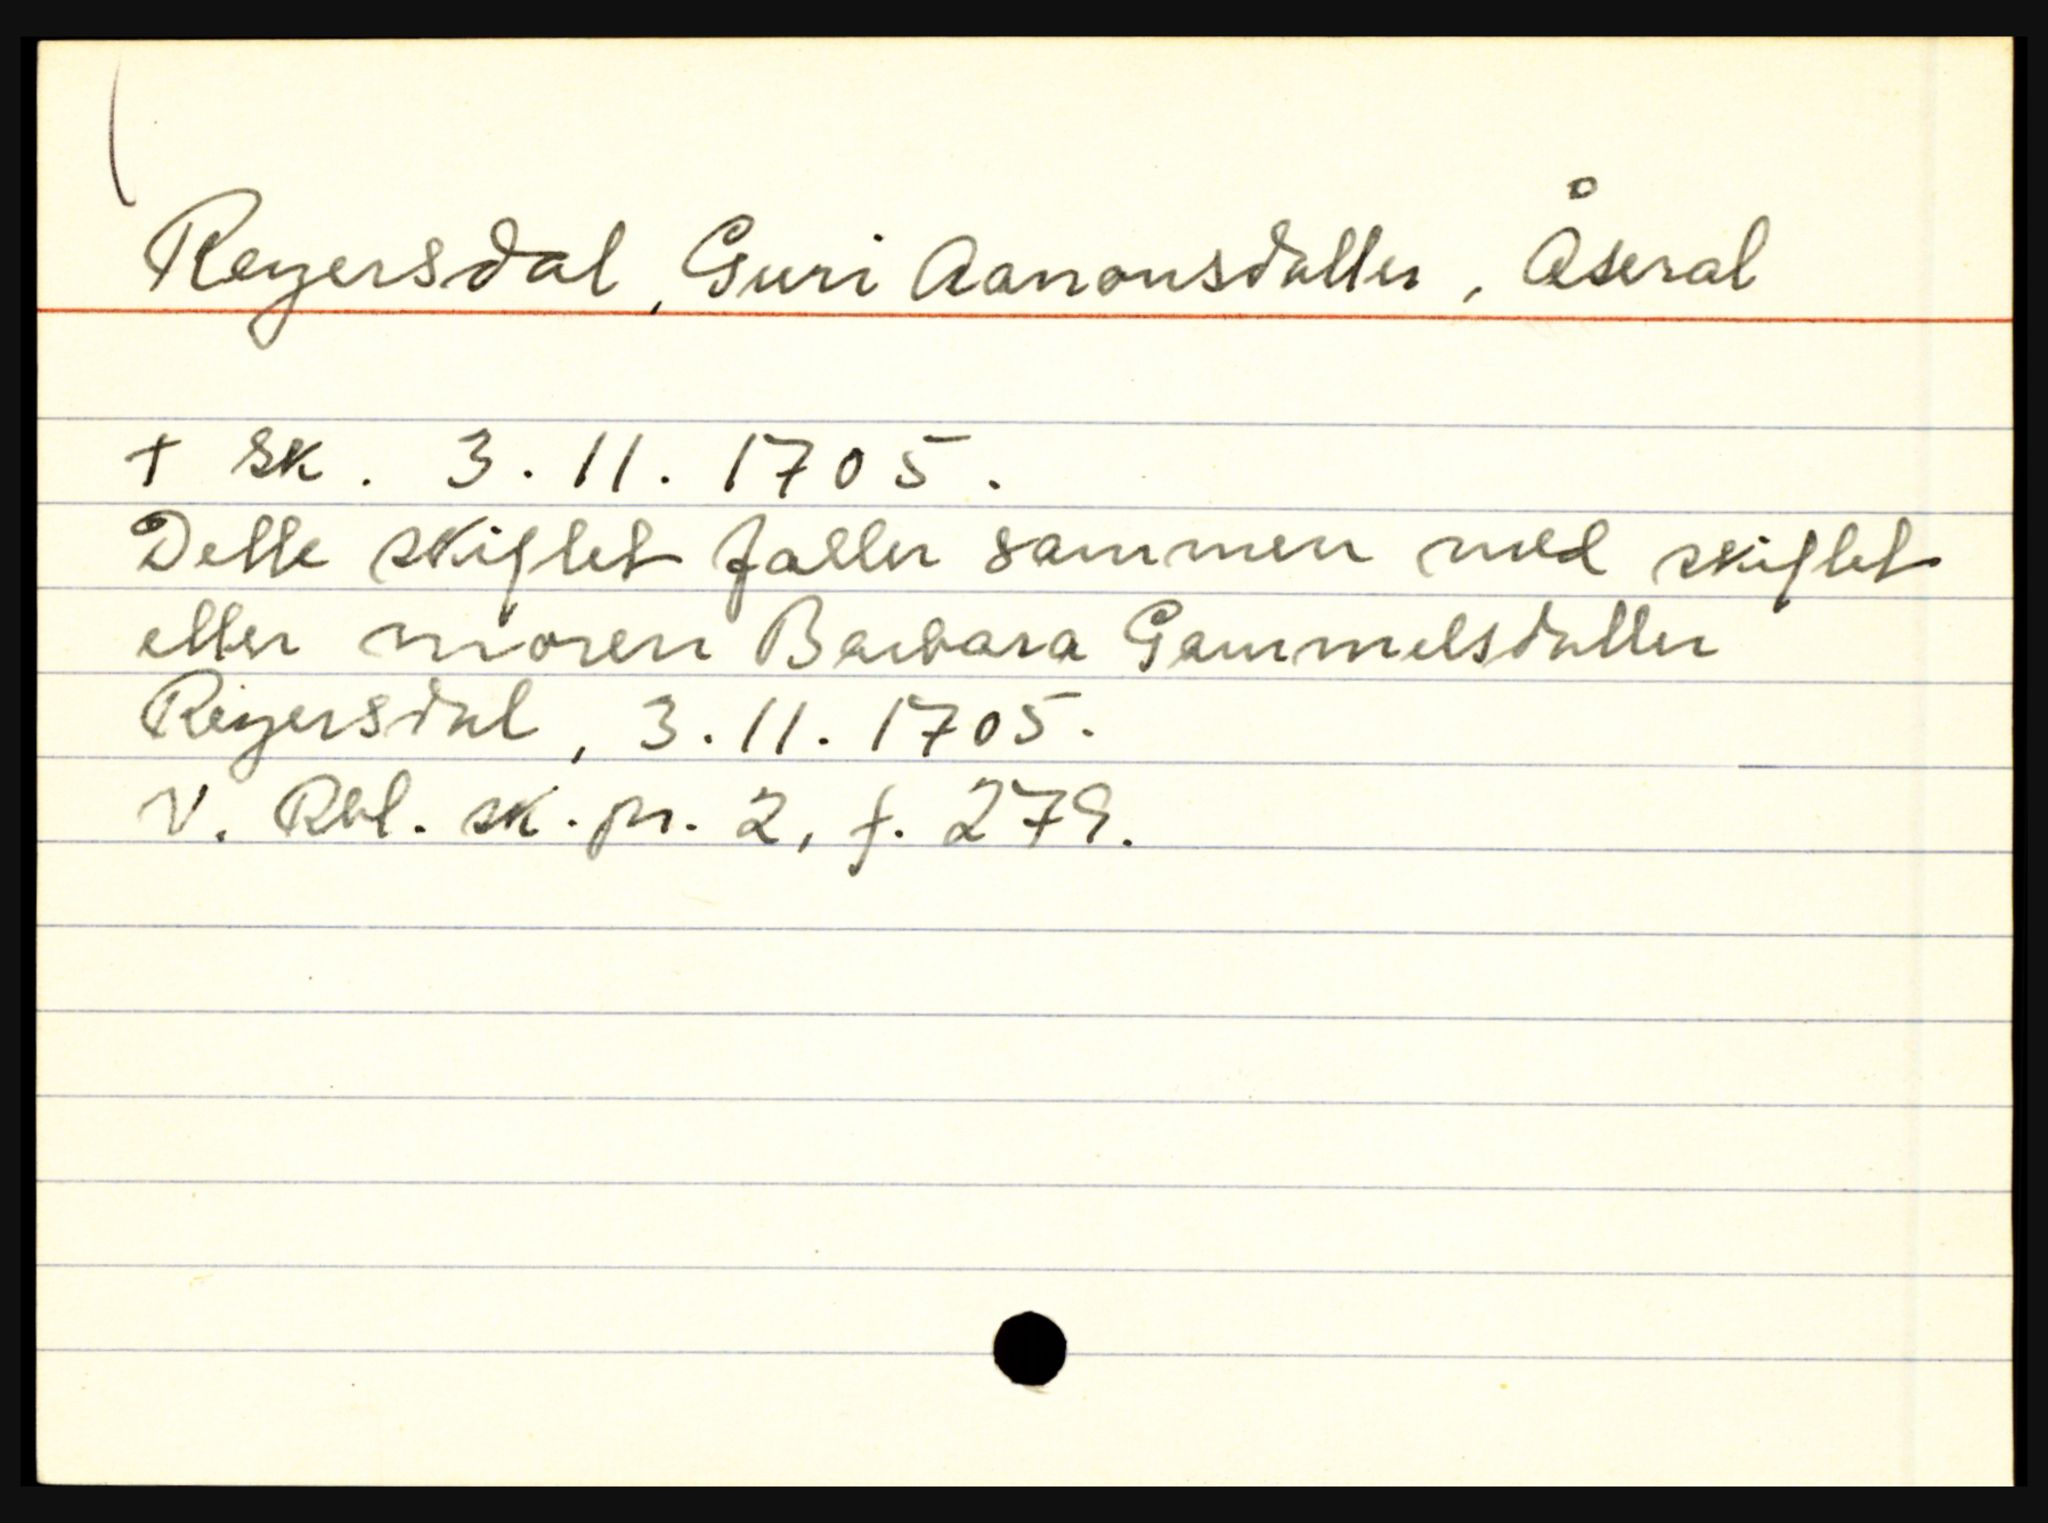 Reyersdal, Guri Aanonsdatter, Åseral
+ sk. 3.11.1705.
Dette skiftet faller sammen med skiftet
etter moren Barbara Gammelsdatter
Reyersdal, 3.11.1705.
V. Rbl. sk. pr. 2, f. 279.